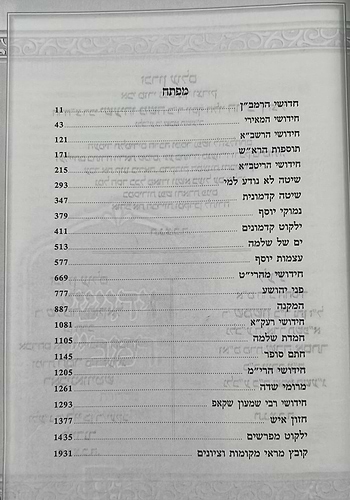 מפתח
חדושי הרמב"ן 11
חידושי המאירי 43
חידושי הרשב"א 121
תוספות הרא"ש 171
חידושי הריטב"א 215
שיטה לא נודע למי 293
שיטה קדמונית 347
נמוקי יוסף 379
ילקוט קדמונים 411
ים של שלמה 513
עצמות יוסף 577
חידושי מהרי"ט 669
פני יהושע 777
המקנה 887
חידושי רעק"א 1081
חמדת שלמה 1105
חתם סופר 1145
חידושי הרי"מ 1205
מרומי שדה 1261
חידושי רבי שמעון שקאפ 1293
חזון איש 1377
ילקוט מפרשים 1435
קובץ מראי מקומות וציונים 1931